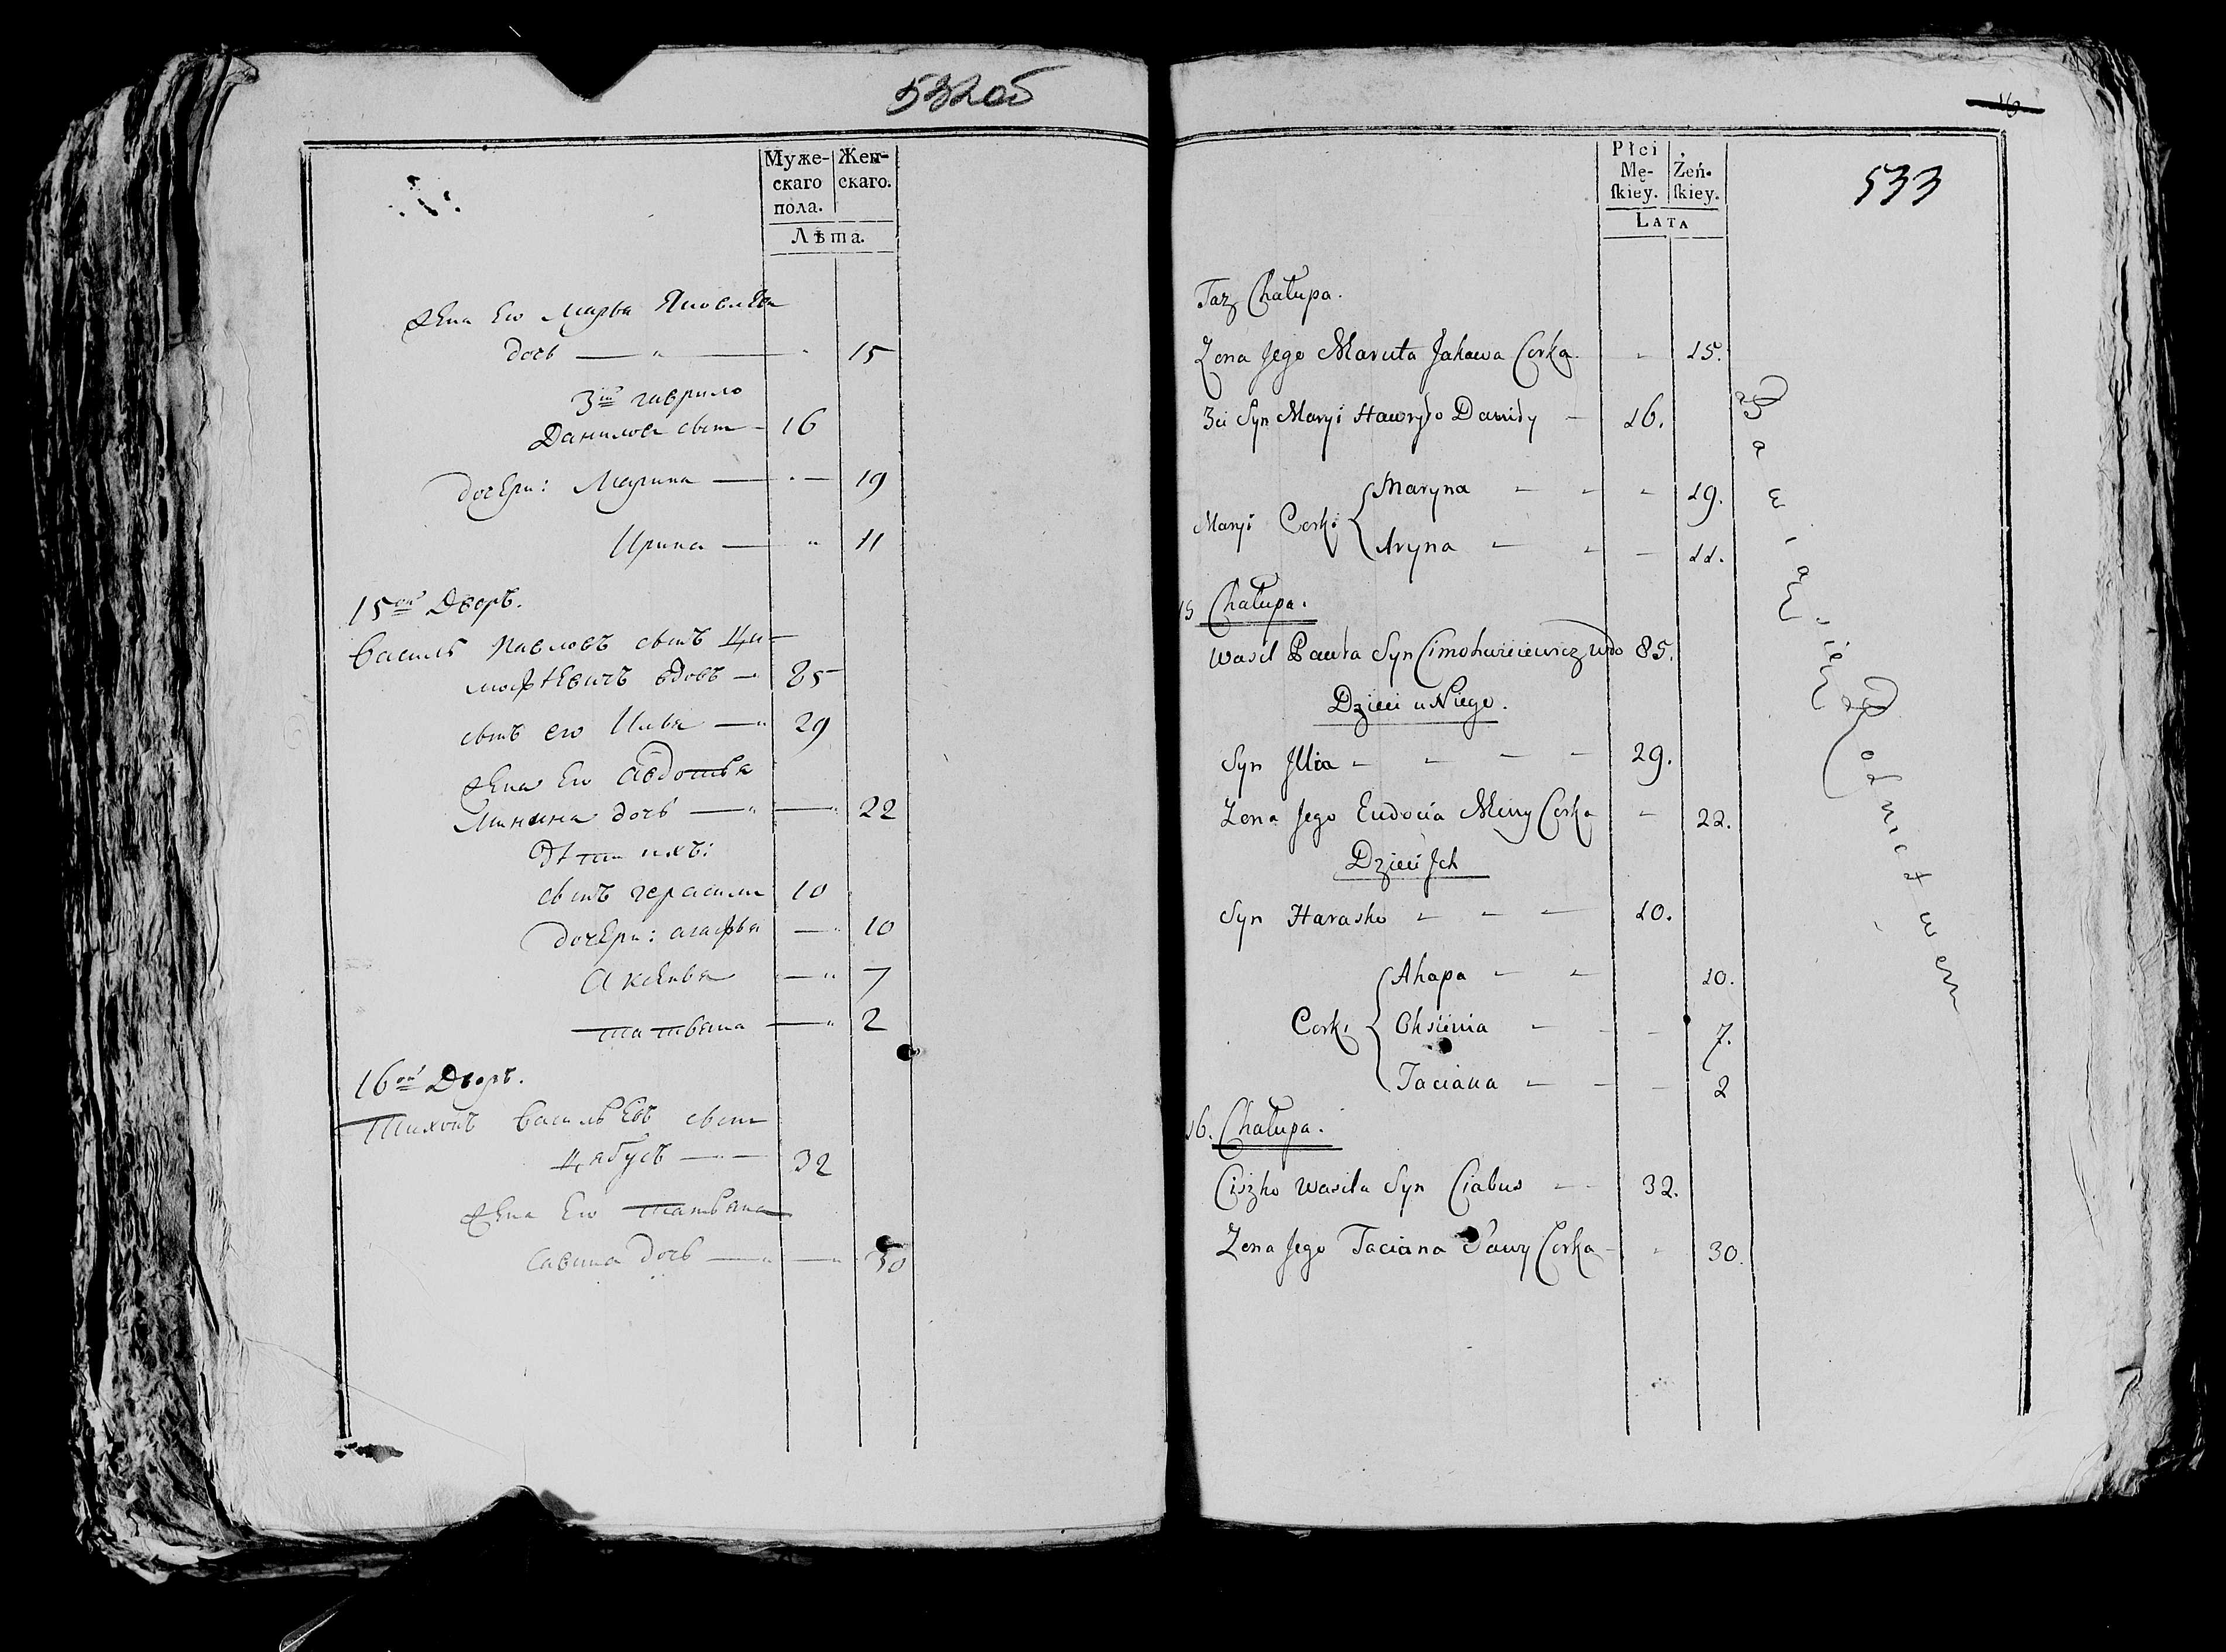 532об
Муже-
скаго
пола.
Жен-
скаго.
Лѣта.
Жена Его Марья Яковлева
дочь — „ — „ 15
3ій гаврило
Данилов сынъ — 16
дочери: Марина — „ — 19
Ирина — „ 11
15ой Дворъ.
Василь Павловъ сынъ Ци-
мофѣевичъ вдовъ — 85
сынъ его Илья — „ 29
Жена Его Авдотья
Минина дочь — „ — „ 22
Дѣти ихъ:
сынъ герасим 10
дочери: агафья — „ 10
Аксенья — „ 7
татьяна — „ 2
16ой Дворъ.
Тихонъ Васильевъ сынъ
Цябусъ — — 32
Жена Его татьяна
Савина дочь — „ — „ 30
16
533
Płci
Mę-
ſkiey.
Żeń-
ſkiey.
Lata
Taz Chałupa.
Zona Jego Maruta Jakowa Corka - 15.
3ci Syn Maryi Hawryło Daniły - 16.
Maryna - - - 19.
Maryi Corki
Aryna - - - 11.
15 Chałupa.
Wasil Pawła Syn Cimohwieiewicz Wdo 85.
Dzieci u Niego.
Syn Jllia - - - - 29.
Zona Jego Eudocia Miny Corka - 22.
Dzieci Jch
Syn Harasko - - - 10.
Ahapa - - 10.
Corki Oksienia - - - 7.
Taciana - - - 2
16. Chałupa.
Ciszko Wasila Syn Ciabus - - 32.
Zona Jego Taciana Sawy Corka - - 30.